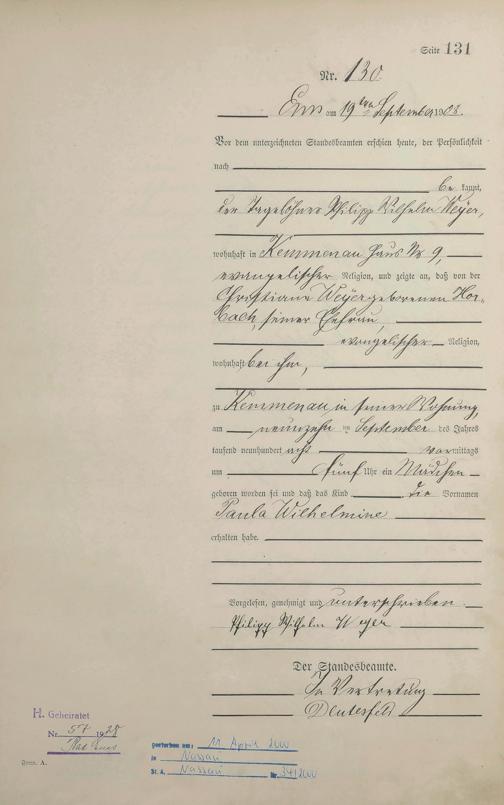 Seite 131
Nr. 130.
Ems am 19ten September 1908.
Vor dem unterzeichneten Standesbeamten erschien heute, der Persönlichkeit
nach
be kannt,
der Tagelöhner Philipp Wilhelm Weyer,
wohnhaft in Kemmenau Haus Nr 9,
evangelischer Religion, und zeigte an, daß von der
Christiane Weyer geborenen Hor-
bach, seiner Ehefrau,
evangelischer Religion,
wohnhaft bei ihm,
zu Kemmenau in seiner Wohnung,
am neunzehn ten September des Jahres
tausend neunhundert acht vormittags
um fünf Uhr ein Mädchen
geboren worden sei und daß das Kind die Vornamen
Paula Wilhelmine
erhalten habe.
Vorgelesen, genehmigt und unterschrieben.
Philipp Wilhelm Weyer
Der Standesbeamte.
In Vertretung
H. Geheiratet
Nr. 57 1928
Bad Ems
gestorben am: 11. April 2000
in Nassau
St. A. Nassau Nr. 34/2000
Form. A.